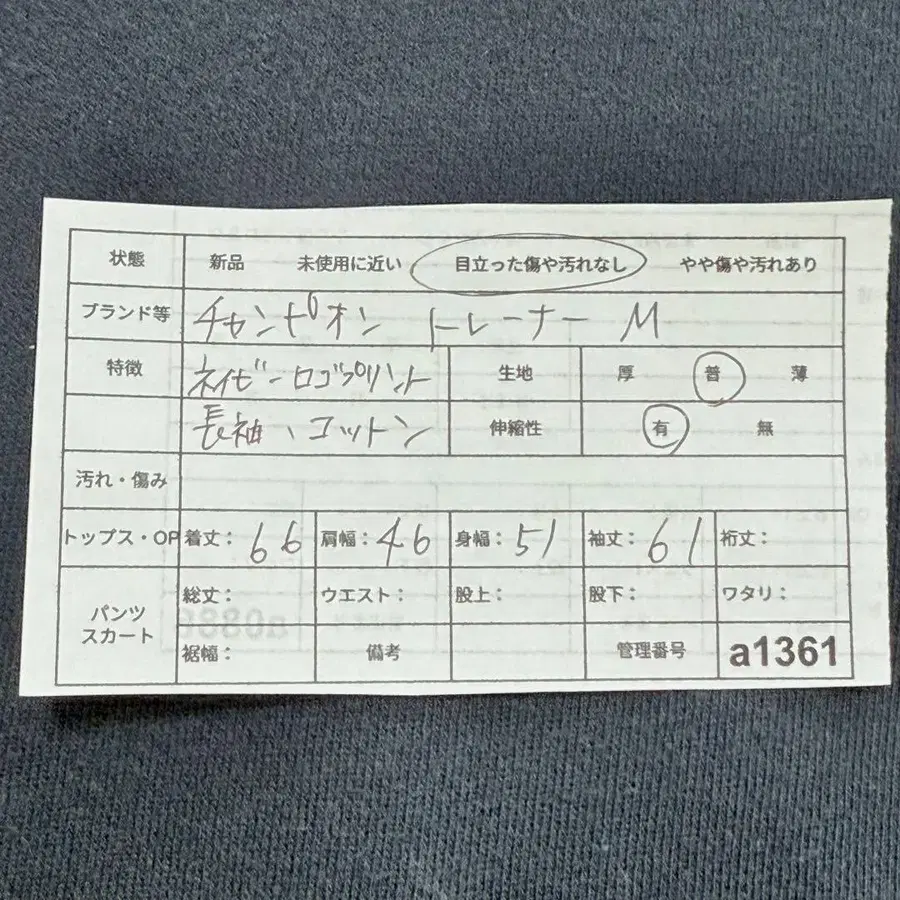 状態 新品 未使用に近い 目立った傷や汚れなし やや傷や汚れあり
ブランド等 チャンピオン トレーナー M
特徴 ネイビー ロゴプリント 生地 厚 普 薄
長袖、コットン 伸縮性 有 無
汚れ・傷み
トップス・OP 着丈: 66 肩幅: 46 身幅: 51 袖丈: 61 裄丈:
パンツ スカート 総丈: ウエスト: 股上: 股下: ワタリ:
裾幅: 備考 管理番号 a1361